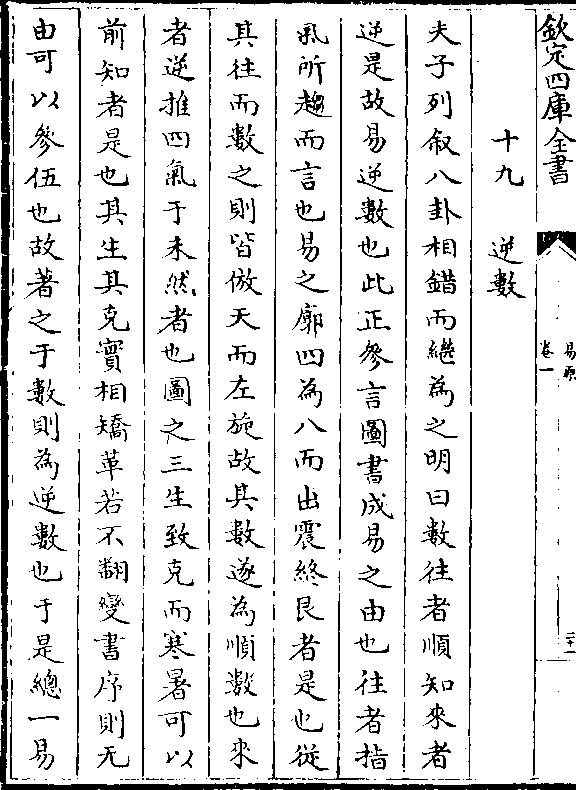 欽定四庫全書
易原
卷一
二十一
十九 逆數
夫子列叙八卦相錯而繼為之明曰數往者順知來者
逆是故易逆數也此正參言圖書成易之由也往者指
氣所趨而言也易之廓四為八而出震終艮者是也從
其往而數之則皆倣天而左施故其數遂為順數也來
者逆推四氣于未然者也圖之三生致克而寒暑可以
前知者是也其生其克實相矯革若不翻變書序則无
由可以參伍也故著之于數則為逆數也于是總一易